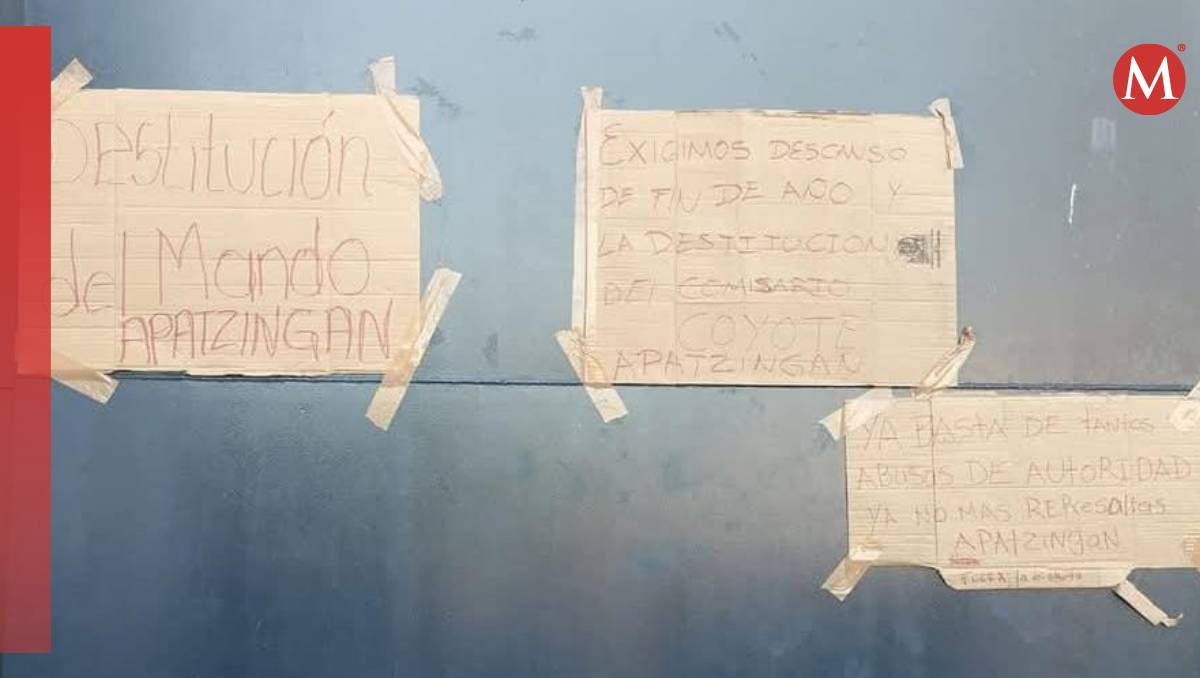 DEstitución
del Mando
APATZINGAN
EXIGIMOS DESCANSO
DE FIN DE AÑO Y
LA DESTITUCION
DEL COMISARIO
COYOTE
APATZINGAN
YA BASTA DE tANtos
ABUSOS DE AUtORIDAD
YA NO MAS REPresalias
APAtZINgaN
FUERA
M